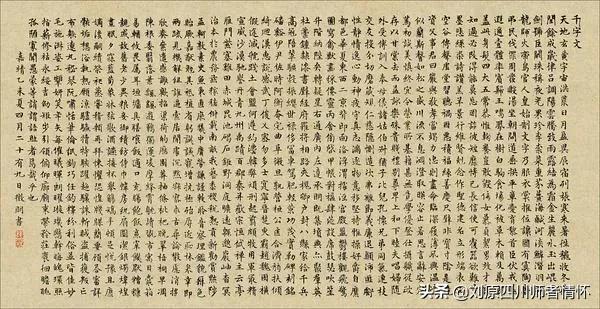 千字文
天地玄黃宇宙洪荒日月盈昃辰宿列張寒來暑往秋收冬藏
閏餘成歲律呂調陽雲騰致雨露結為霜金生麗水玉出崐崗
劒號巨闕珠稱夜光菓珍李柰菜重芥薑海鹹河淡鱗潛羽翔
龍師火帝鳥官人皇始制文字乃服衣裳推位讓國有虞陶唐
弔民伐罪周發殷湯坐朝問道垂拱平章愛育黎首臣伏戎羌
遐邇壹體率賓歸王鳴鳳在樹白駒食場化被草木賴及萬方
蓋此身髮四大五常恭惟鞠養豈敢毀傷女慕貞絜男效才良
知過必改得能莫忘罔談彼短靡恃己長信使可覆器欲難量
墨悲絲染詩讚羔羊景行維賢剋念作聖德建名立形端表正
空谷傳聲虛堂習聽禍因惡積福緣善慶尺璧非寶寸陰是競
資父事君曰嚴與敬孝當竭力忠則盡命臨深履薄夙興溫凊
似蘭斯馨如松之盛川流不息淵澄取映容止若思言辭安定
篤初誠美慎終宜令榮業所基籍甚無竟學優登仕攝職從政
存以甘棠去而益詠樂殊貴賤禮別尊卑上和下睦夫唱婦隨
外受傅訓入奉母儀諸姑伯叔猶子比兒孔懷兄弟同氣連枝
交友投分切磨箴規仁慈隱惻造次弗離節義廉退顛沛匪虧
性靜情逸心動神疲守真志滿逐物意移堅持雅操好爵自縻
都邑華夏東西二京背邙面洛浮渭據涇宮殿盤鬱樓觀飛驚
圖寫禽獸畫彩仙靈丙舍傍啟甲帳對楹肆筵設席鼓瑟吹笙
升階納陛弁轉疑星右通廣內左達承明既集墳典亦聚群英
杜稾鍾隸漆書壁經府羅將相路俠槐卿戶封八縣家給千兵
高冠陪輦驅轂振纓世祿侈富車駕肥輕策功茂實勒碑刻銘
磻溪伊尹佐時阿衡奄宅曲阜微旦孰營桓公匡合濟弱扶傾
綺迴漢惠說感武丁俊乂密勿多士寔寧晉楚更霸趙魏困橫
假途滅虢踐土會盟何遵約法韓弊煩刑起翦頗牧用軍最精
宣威沙漠馳譽丹青九州禹跡百郡秦并嶽宗恒岱禪主云亭
雁門紫塞雞田赤城昆池碣石鉅野洞庭曠遠綿邈巖岫杳冥
治本於農務資稼穡俶載南畝我藝黍稷稅熟貢新勸賞黜陟
孟軻敦素史魚秉直庶幾中庸勞謙謹敕聆音察理鑑貌辨色
貽厥嘉猷勉其祗植省躬譏誡寵增抗極殆辱近恥林皋幸即
兩疏見機解組誰逼索居閒處沉默寂寥求古尋論散慮逍遙
欣奏累遣慼謝歡招渠荷的歷園莽抽條枇杷晚翠梧桐早凋
陳根委翳落葉飄颻遊鵾獨運凌摩絳霄耽讀玩市寓目囊箱
易輶攸畏屬耳垣牆具膳餐飯適口充腸飽飫烹宰饑厭糟糠
親戚故舊老少異糧妾御績紡侍巾帷房紈扇圓潔銀燭煒煌
晝眠夕寐藍筍象床弦歌酒讌接杯舉觴矯手頓足悅豫且康
嫡後嗣續祭祀烝嘗稽顙再拜悚懼恐惶牋牒簡要顧答審詳
骸垢想浴執熱願涼驢騾犢特駭躍超驤誅斬賊盜捕獲叛亡
布射遼丸嵇琴阮嘯恬筆倫紙鈞巧任釣釋紛利俗並皆佳妙
毛施淑姿工顰妍笑年矢每催曦暉朗曜璇璣懸斡晦魄環照
指薪修祜永綏吉劭矩步引領俯仰廊廟束帶矜莊徘徊瞻眺
孤陋寡聞愚蒙等誚謂語助者焉哉乎也
嘉靖乙未夏四月二十有九日徵明書
头条 @刘原四川师者情怀